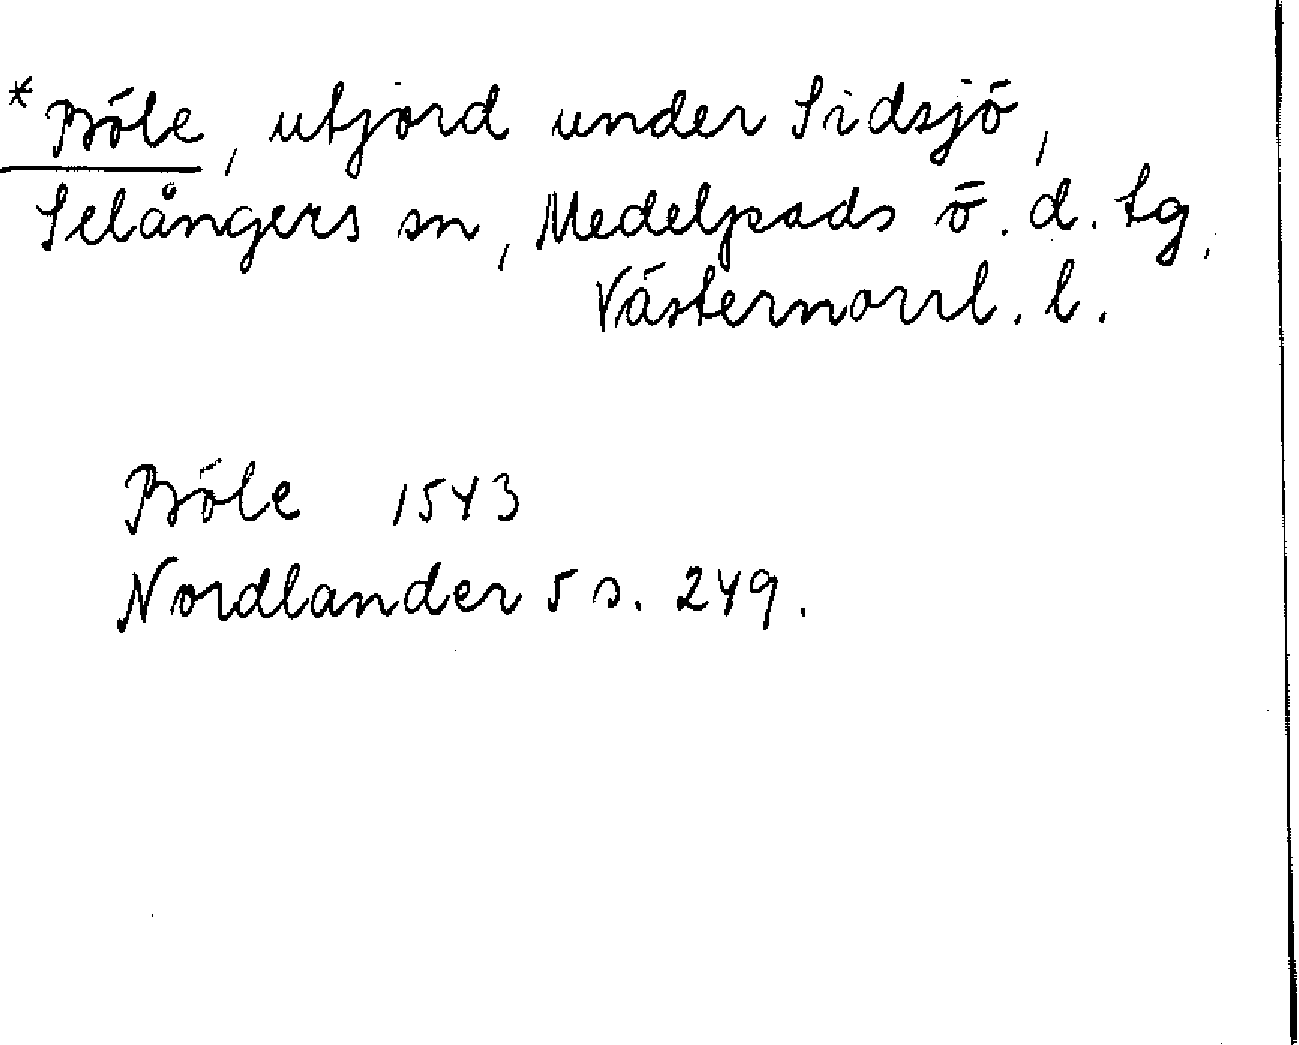 *Böle, utjord under Sidsjö,
Selångers sn, Medelpads ö. d. tg,
Västernorrl. l.
Böle 1543
Nordlander 5 s. 249.